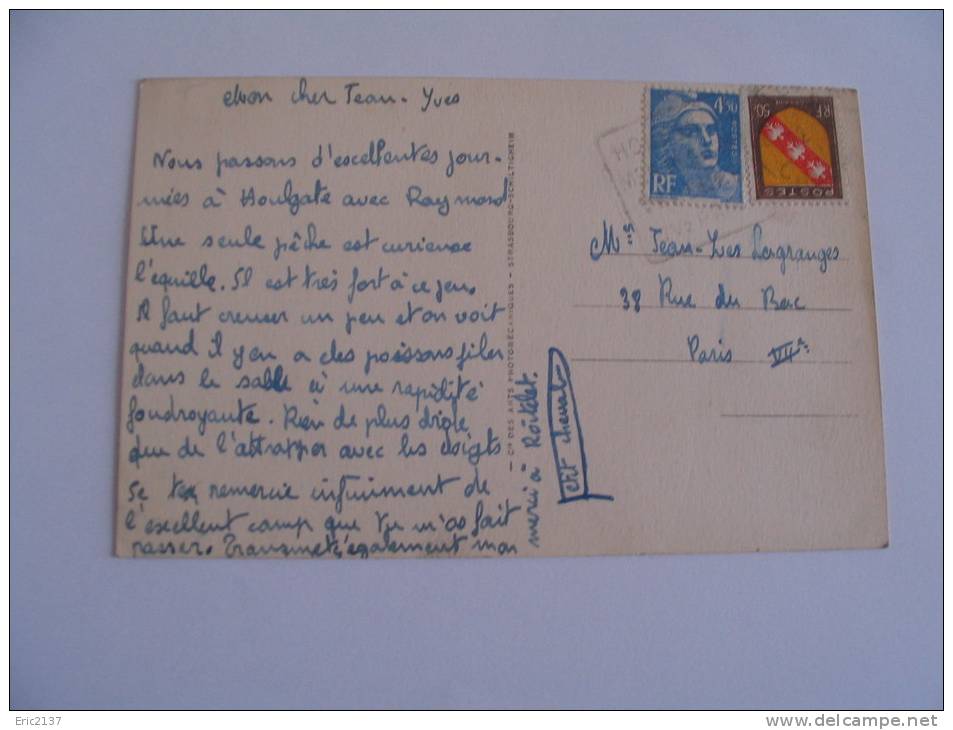 Mon cher Jean-Yves
Nous passons d'excellentes jour-
nées à Houlgate avec Raymond
Une seule pêche est curieuse
l'équille. Il est très fort à ce jeu.
Il faut creuser un peu et on voit
quand il y en a des poissons filer
dans le sable à une rapidité
foudroyante. Rien de plus drôle
que de l'attrapper avec les doigts
Je te remercie infiniment de
l'excellent camp que tu m'as fait
passer. Transmet également mon
merci à Roitelet.
C^ie DES ARTS PHOTOMÉCANIQUES - STRASBOURG-SCHILTIGHEIM
4f50
POSTES
RF
RF
50c
POSTES
Jean-Yves Lagranges
38 Rue du Bac
Paris VII
Eric2137
www.delcampe.net